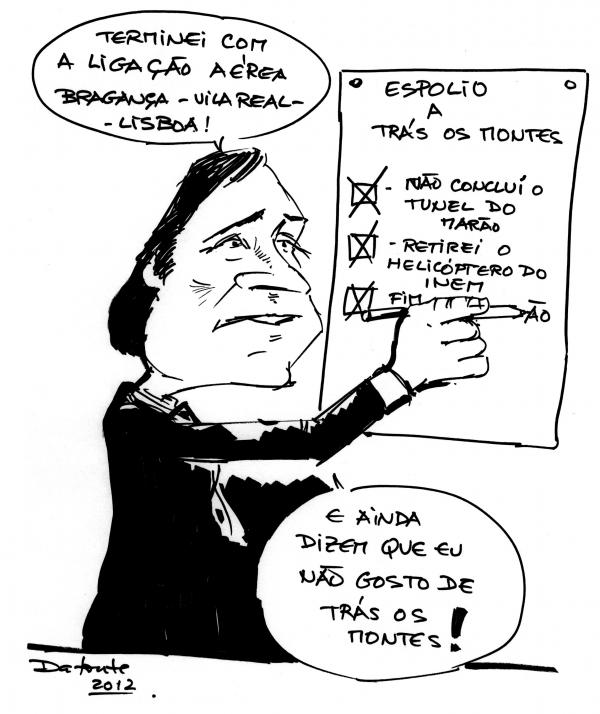 TERMINEI COM
A LIGAÇÃO AÉREA
BRAGANÇA - VILA REAL -
- LISBOA!
ESPOLIO
A
TRÁS OS MONTES
- NÃO CONCLUÍ O
TUNEL DO
MARÃO
- RETIREI O
HELICÓPTERO DO
INEM
FIM
ÃO
E AINDA
DIZEM QUE EU
NÃO GOSTO DE
TRÁS OS
MONTES!
2012